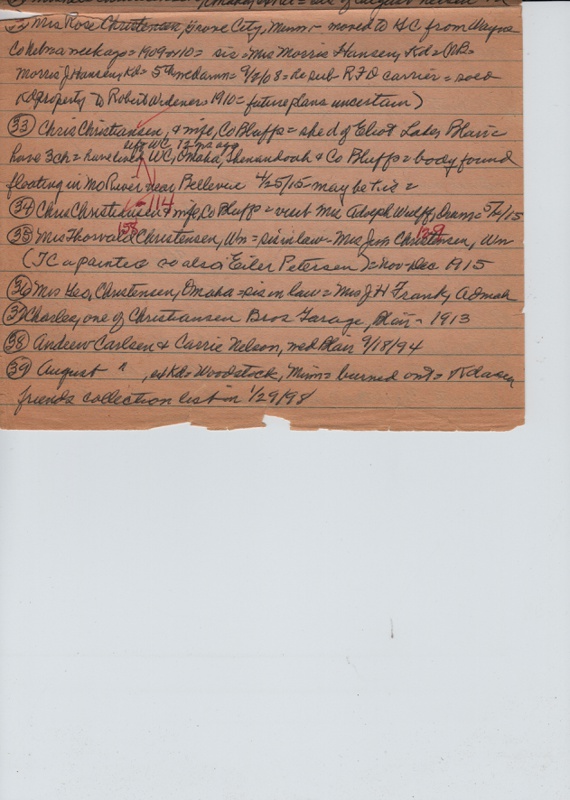 Mrs Rose Christensen, Grove City, Minn - moved to G.C. from Wayne
Co Nebr a week ago = 1909 or 10 = sis = Mrs Morris Hansen, Kd =
Morris J Hansen, Kd = 9/2/08 = sub RFD carrier = sold
Kd property to Robert Wardener 1910 = future plans uncertain)
(33) Chris Christiansen, & wife, Co Bluffs = of Eliot Lake, Blair =
left WC 12 ms ago
have 3 ch = have lived WC, Omaha, Shenandoah & Co Bluffs = body found
floating in Mo River near Bellevue 4/25/15 - may be his =
114
(34) Chris Christensen & wife, Co Bluff = visit Mrs Adolph Wulff, Oram = 5/4/15
138 138
(35) Mrs Thorvald Christensen, Wn = sis in law - Mrs Jim Christensen, Wn
(TC a painter so also Eiler Petersen) = Nov-Dec 1915
(36) Mrs Geo, Christensen, Omaha = sis in law = Mrs J H Frank, Admah
37 Charles, one of Christiansen Bros Garage, Blair - 1913
(38) Andrew Carleen & Carrie Nelson, med Blair 9/18/94
(39) August " , ex Kd = Woodstock, Minn = burned out =
friends collection list in 1/29/98